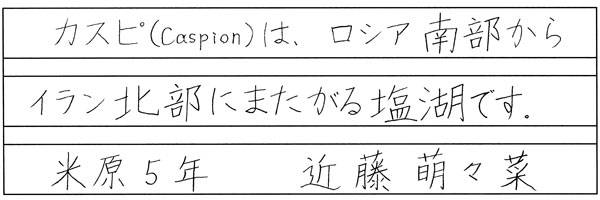 カスピ(Caspion)は、ロシア南部から
イラン北部にまたがる塩湖です.
米原5年 近藤萌々菜